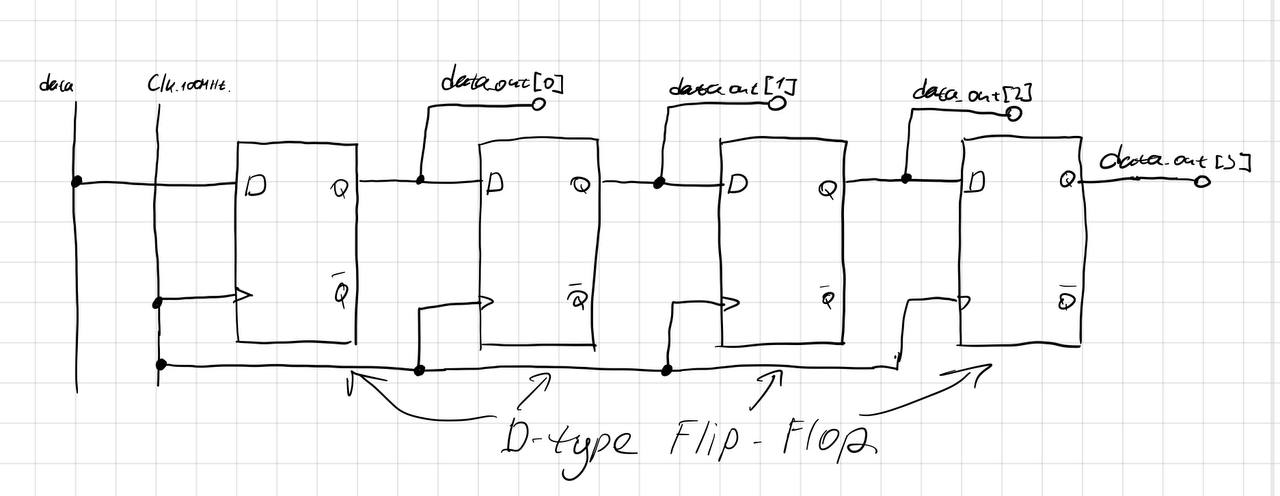 data
Clk.100MHz.
data_out[0]
data_out[1]
data_out[2]
data_out[3]
D
Q
Q̅
D
Q
Q̅
D
Q
Q̅
D
Q
Q̅
D-type Flip-Flop